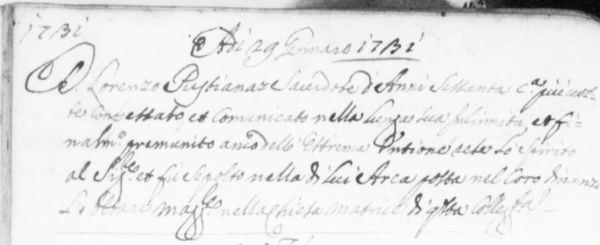 1731
Adi 29 Gennaro 1731
D. Lorenzo Sacerdote d'Anni Settanta c.a più vol-
te Confessato, et Comunicato nella sua et fi-
nalm.te premunito anco dell' Estrema Untione rese lo spirito
al Sig.re et fu sepolto nella di lui Arca posta nel Coro dinanzi
l'Altare magg.re nella Chiesa Matrice di q.sta